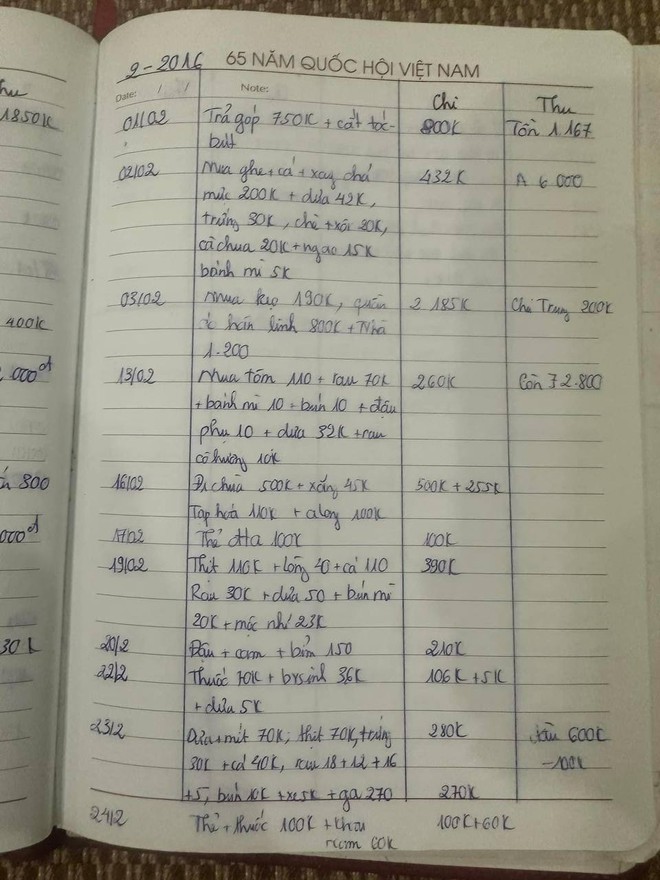 Thu
1850K
400K
000đ
800
000đ
30K
2-2016 65 NĂM QUỐC HỘI VIỆT NAM
Date: / / Note: Chi Thu
01/02 Trả góp 750K + cắt tóc 800K Tồn 1.167
bút
02/02 Mua ghẹ + cá + xay chả 432K A 6.000
mực 200K + dứa 42K,
trứng 30K, chè + xôi 20K,
cà chua 20K + ngao 15K
bánh mì 5K
03/02 Mua kẹo 190K, quần 2.185K Chị Trung 200K
áo hân linh 800K + Nhã
1.200
13/02 Mua tôm 110 + rau 70K 260K Còn 72.800
+ bánh mì 10 + bún 10 + đậu
phụ 10 + dứa 32K + rau
10K
16/02 Đi chùa 500K + xăng 45K 500K + 255K
Tạp hoá 110K + 100K
17/02 Thẻ 100K 100K
19/02 Thịt 110K + lòng 40 + cá 110 390K
Rau 30K + dứa 50 + bún mì
20K + mộc nhĩ 23K
20/2 Đậu + cơm + bỉm 150 210K
22/2 Thuốc 70K + 36K 106K + 5K
+ dứa 5K
23/2 Dứa + mít 70K; thịt 70K, trứng 280K 600K
30K + cá 40K, rau 18 + 12 + 16 -100K
+5, bún 10K + xe 5K + ga 270 270K
24/2 Thẻ + thuốc 100K + 100K + 60K
60K